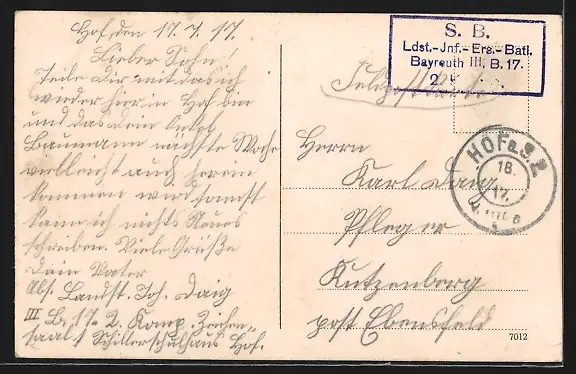 Hof, den 17.7.17.
Lieber Sohn!
Teile Dir mit das ich
wieder hier in Hof bin
und das Dein Onkel
Baumann nächste Woche
vielleicht auch herein
kommen wird sonst
kann ich nichts Neues
schreiben. Viele Grüße
Dein Vater
Abs. Landst. Joh. Daig
III B. 17. 2. Komp. Zeichen-
saal 1 Schillerschulhaus Hof.
S. B.
Ldst.-Jnf.-Ers.-Batl.
Bayreuth III. B. 17.
2
HOF a. S. 2
18.
17.
Herrn
Karl Daig
Pfleger
Kutzenberg
post Ebensfeld
7012